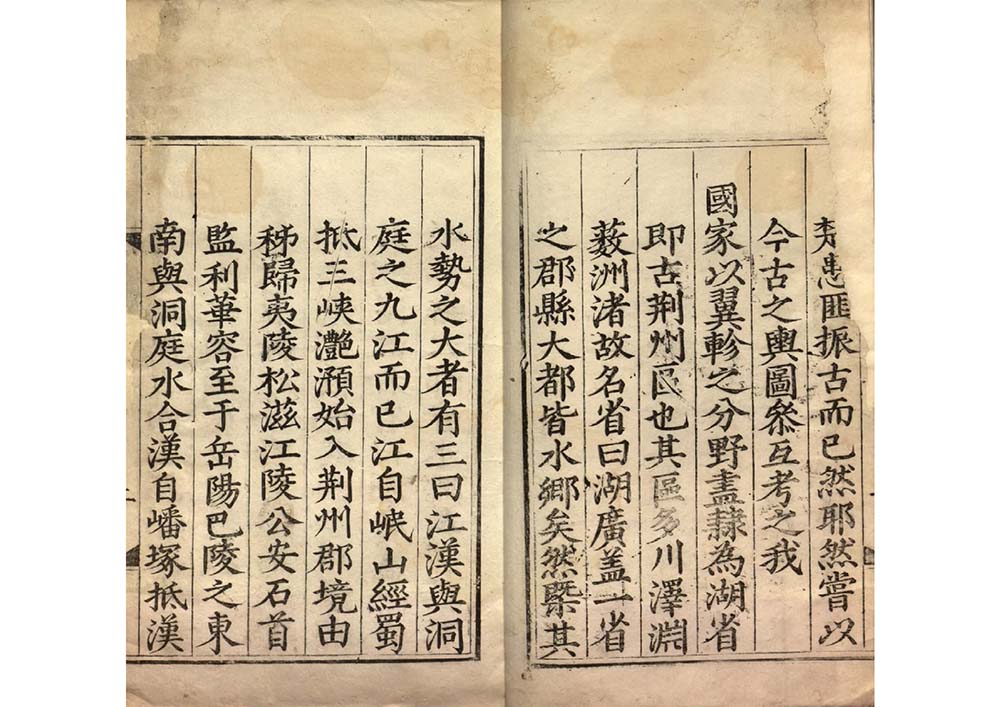 楚患匪振古而已然耶然嘗以
今古之輿圖叅互考之我
國家以翼軫之分野盡隸為湖省
即古荆州區也其區多川澤淵
藪洲渚故名省曰湖廣盖一省
之郡縣大都皆水鄉矣然槩其
水勢之大者有三曰江漢與洞
庭之九江而已江自岷山經蜀
抵三峽灧澦始入荆州郡境由
秭歸夷陵松滋江陵公安石首
監利華容至于岳陽巴陵之東
南與洞庭水合漢自嶓塚抵漢